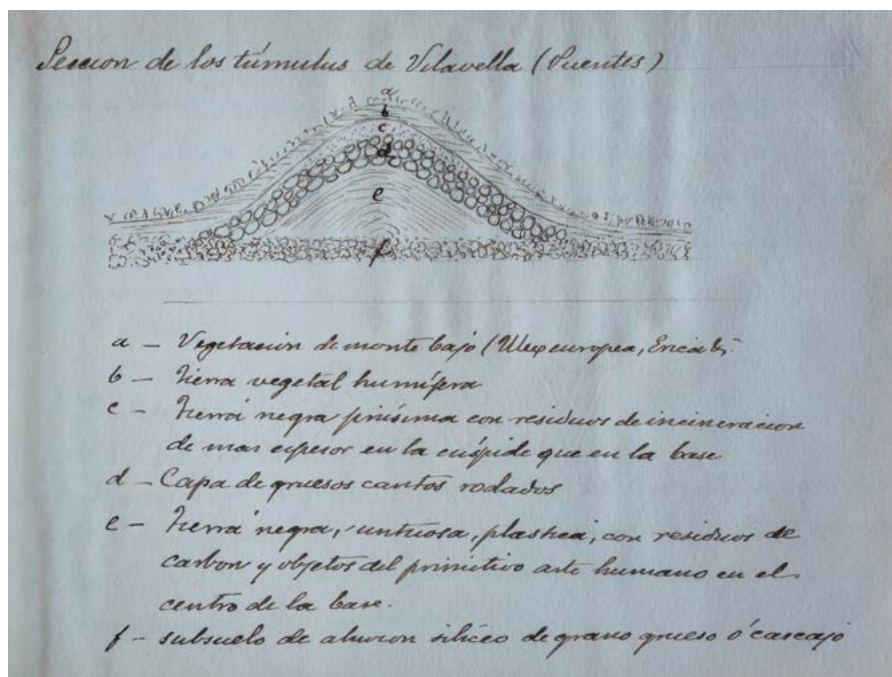 Seccion de los túmulus de Vilavella (Puentes)
a
b
c
d
e
f
a – Vegetación de monte bajo (Ulex europea, Erica &
b – Tierra vegetal humífera
c – Tierra negra finísima con residuos de incineracion
de mas espesor en la cúspide que en la base
d – Capa de gruesos cantos rodados
e – Tierra negra, untuosa, plastica, con residuos de
carbon y objetos del primitivo arte humano en el
centro de la base.
f – subsuelo de aluvion silíceo de grano grueso ó cascajo